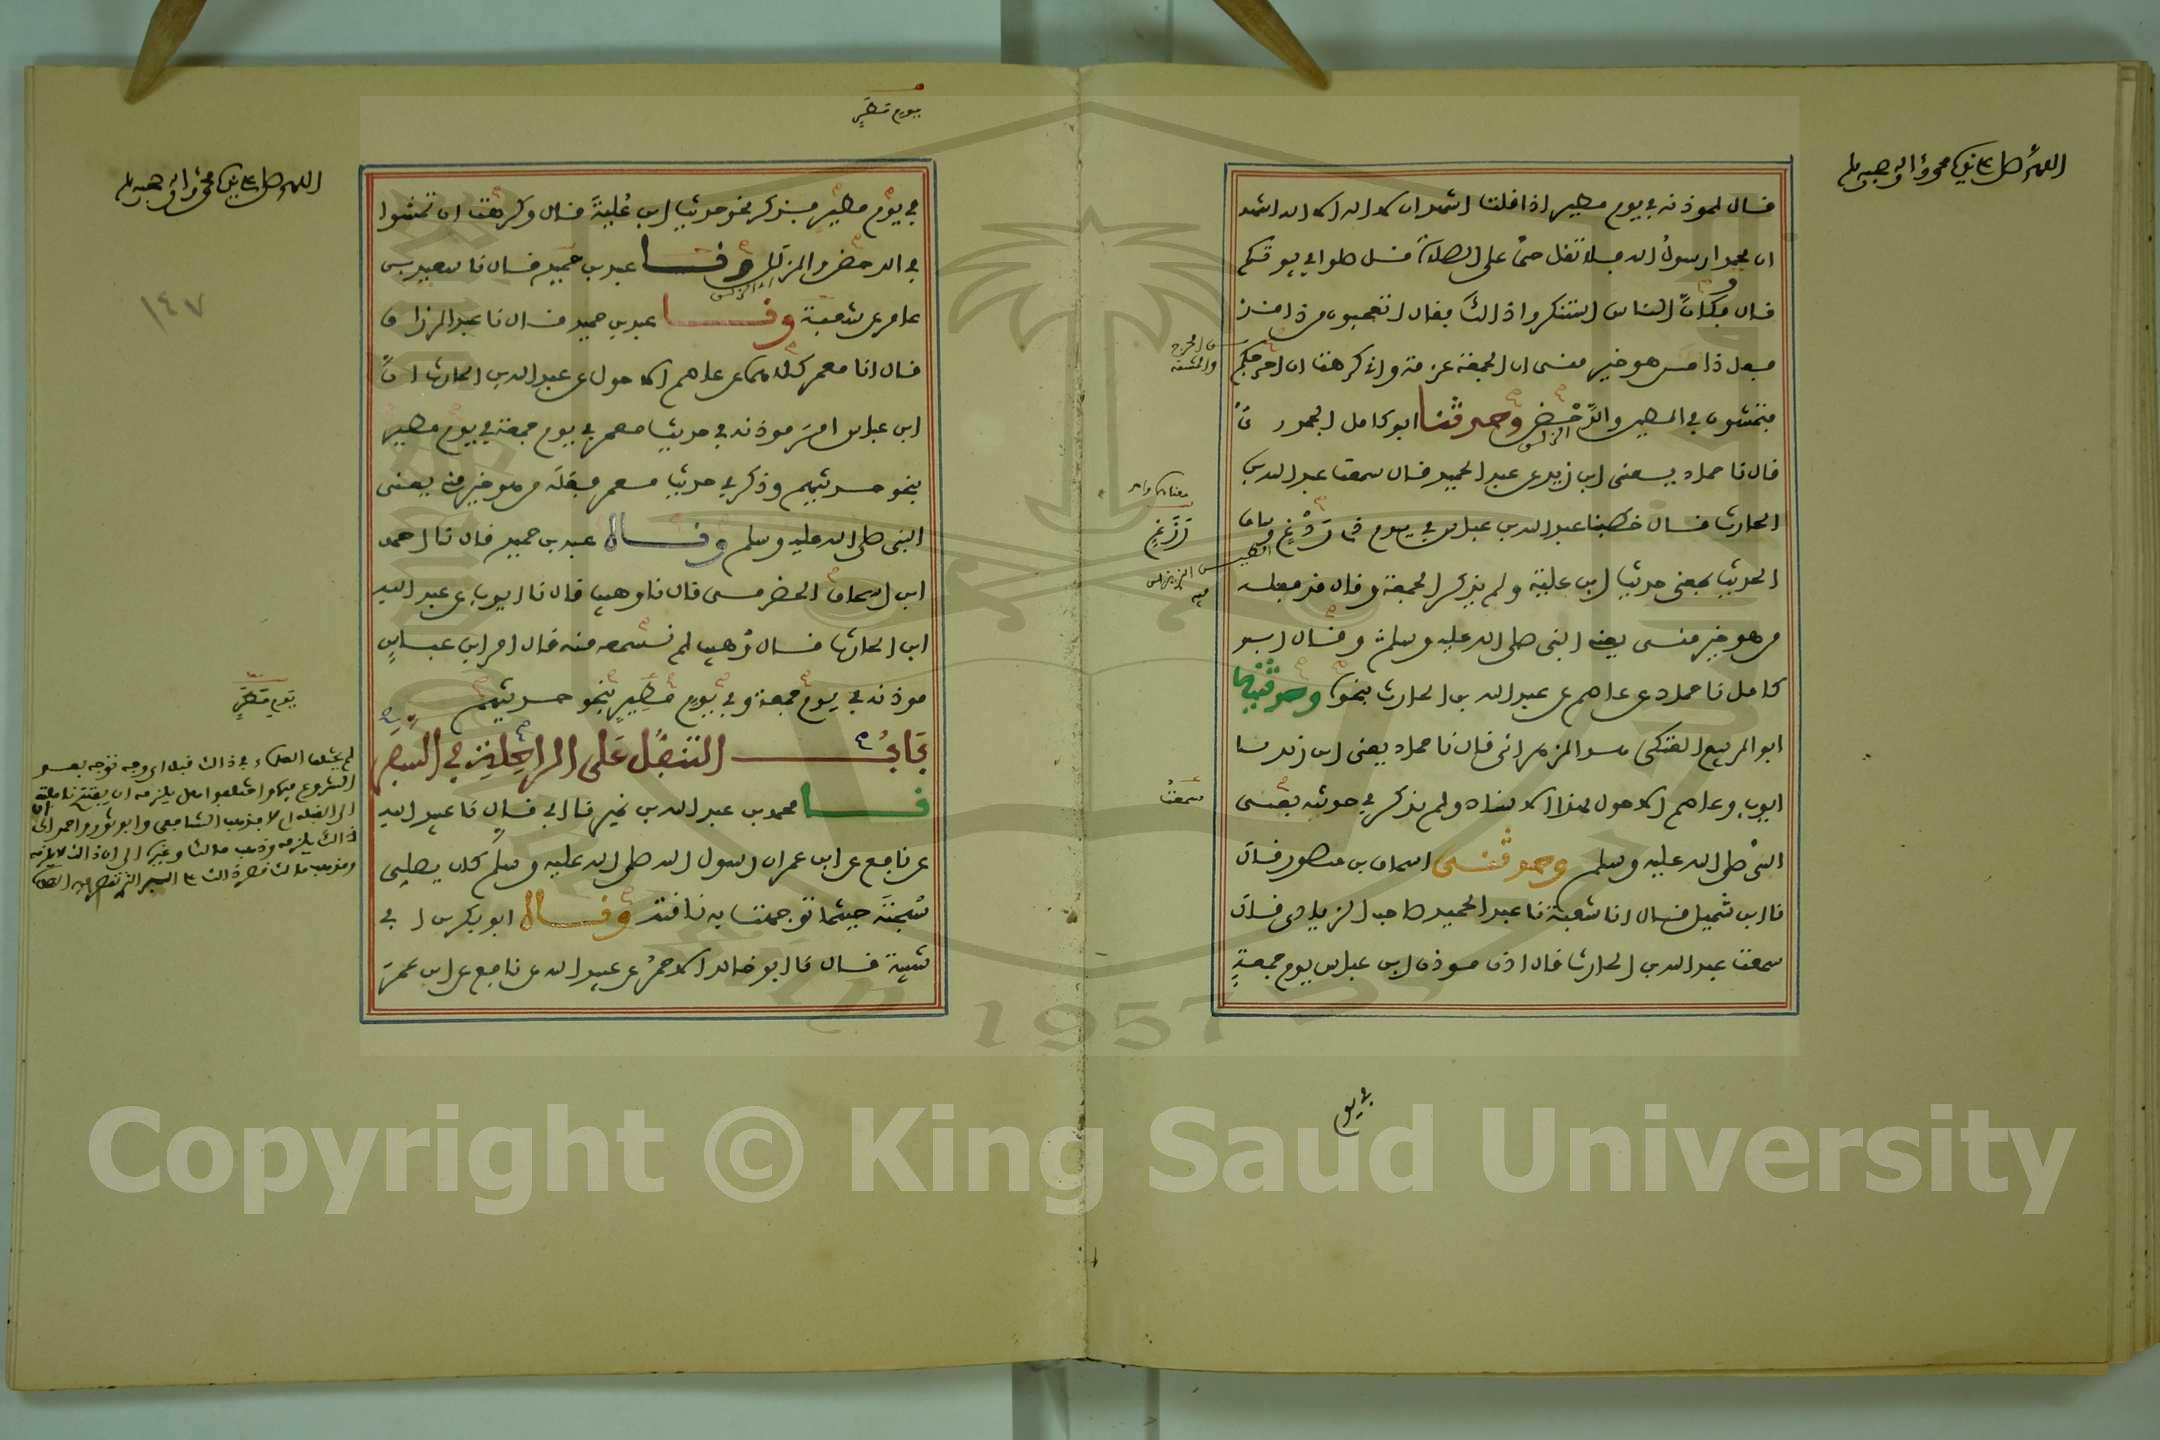 اللهم صل على نبينا محمد وآله وصحبه وسلم
قال لموذنه في يوم مطير اذا قلت اشهد ان لا اله الا الله اشهد
ان محمدا رسول الله فلا تقل حي على الصلاة قل صلوا في بيوتكم
قال وكان الناس استنكروا ذالك فقال اتعجبون من ذا قد
فعل ذا من هو خير مني ان الجمعة عزمة واني كرهت ان احرجكم
من الحرج والمشقة
فتمشون في الطين والدحض وحدثنا ابو كامل الجحدري
الزلق
قال نا حماد يعني ابن زيد عن عبد الحميد قال سمعت عبد الله بن
الحارث قال خطبنا عبد الله بن عباس في يوم ذي ردغ وساق
رزغ
الحديث بمعنى حديث ابن علية ولم يذكر الجمعة وقال قد فعله
من هو خير مني يعني النبي صلى الله عليه وسلم وقال ابو
كامل نا حماد عن عاصم عن عبد الله بن الحارث بنحوه وحدثنيه
ابو الربيع العتكي هو الزهراني قال نا حماد يعني ابن زيد نا
ايوب وعاصم الاحول بهذا الاسناد ولم يذكر في حديثه يعني
النبي صلى الله عليه وسلم وحدثني اسحاق بن منصور قال
نا ابن شميل قال انا شعبة نا عبد الحميد صاحب الزيادي قال
سمعت
سمعت عبد الله بن الحارث قال اذن موذن ابن عباس يوم جمعة
في يو
بيوم مطير
اللهم صل على نبينا محمد وآله وصحبه وسلم
١٤٧
في يوم مطير فذكر نحو حديث ابن علية قال وكرهت ان تمشوا
في الدحض والزلل وقا عبد بن حميد قال نا سعيد بن
عامر عن شعبة وقا عبد بن حميد قال نا عبد الرزاق
قال انا معمر كلاهما عن عاصم الاحول عن عبد الله بن الحارث ان
ابن عباس امر موذنه في حديث معمر في يوم جمعة في يوم مطير
بنحو حديثهم وذكر في حديث معمر فعله من هو خير مني يعني
النبي صلى الله عليه وسلم وقال عبد بن حميد قال نا احمد
ابن اسحاق الحضرمي قال نا وهيب قال نا ايوب عن عبد الله
ابن الحارث قال وهيب لم نسمعه منه قال امر ابن عباس
موذنه في يوم جمعة وفي يوم مطير بنحو حديثهم
يوم مطير
باب التنفل على الراحلة في السفر
قا محمد بن عبد الله بن نمير قال ابي قال نا عبيد الله
عن نافع عن ابن عمر ان رسول الله صلى الله عليه وسلم كان يصلي
سبحته حيثما توجهت به ناقته وقال ابو بكر بن ابي
شيبة قال نا ابو خالد الاحمر عن عبيد الله عن نافع عن ابن عمر
Copyright © King Saud University
1957